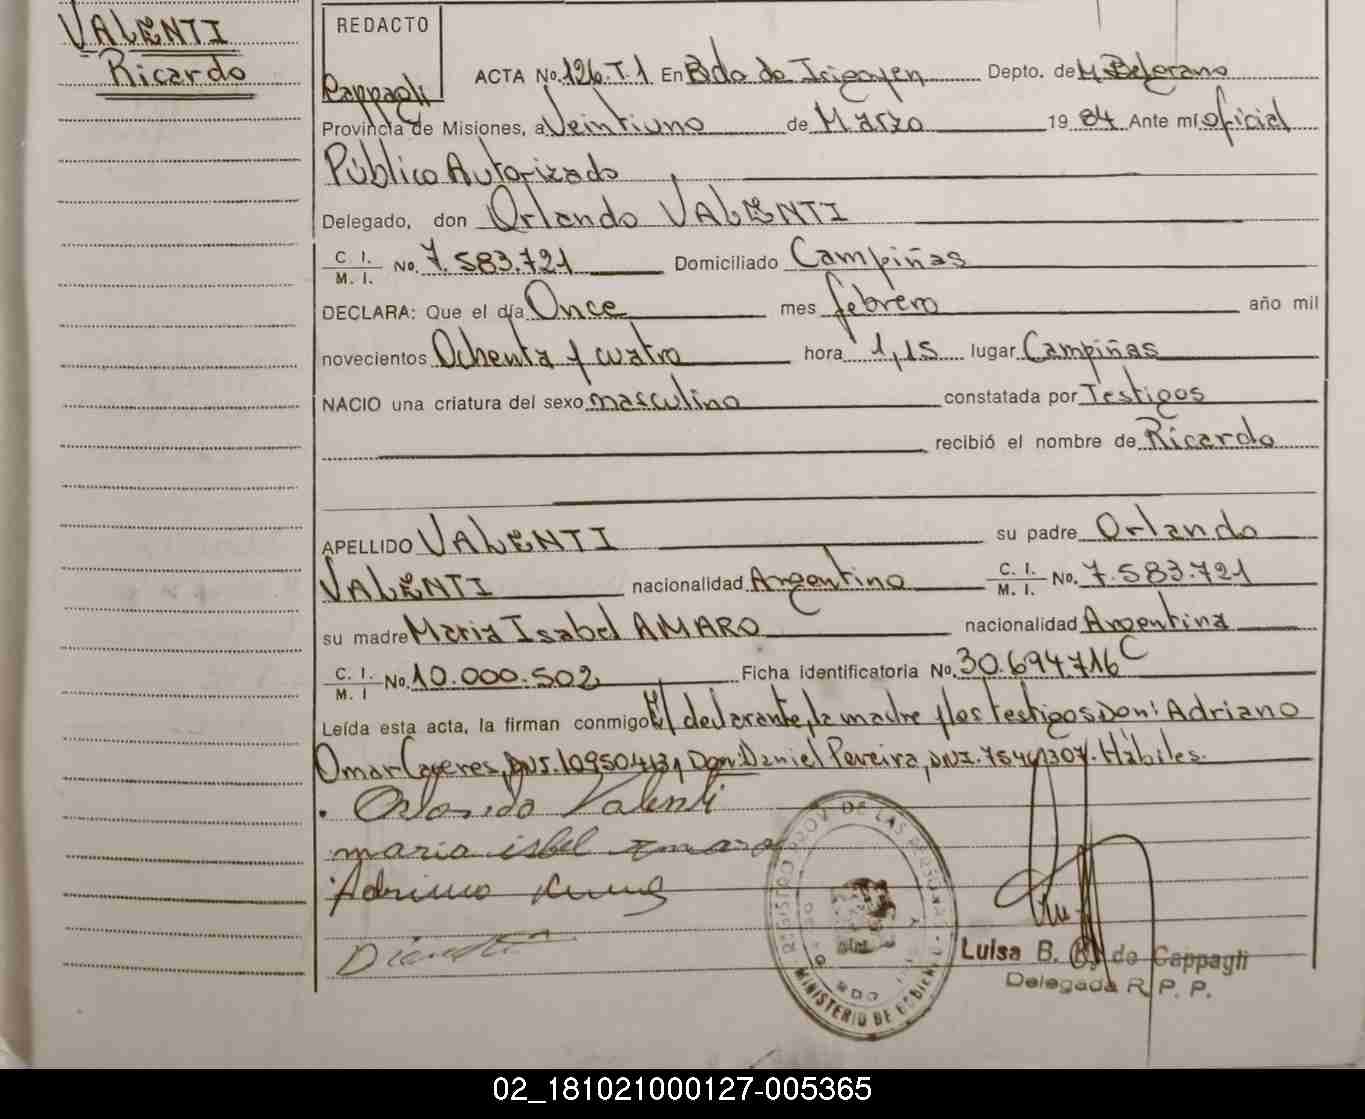 VALENTI
Ricardo
REDACTO
Cappagli
ACTA No. 126.T.1 En Bdo de Irigoyen Depto. de M. Belgrano
Provincia de Misiones, a Veintiuno de Marzo 19 84 Ante mí oficial
Público Autorizado
Delegado, don Orlando VALENTI
C. I. M. I. No. 7.583.721 Domiciliado Campiñas
DECLARA: Que el día Once mes febrero año mil
novecientos Ochenta y cuatro hora 1,15 lugar Campiñas
NACIO una criatura del sexo masculino constatada por Testigos
recibió el nombre de Ricardo
APELLIDO VALENTI su padre Orlando
VALENTI nacionalidad Argentino C. I. M. I. No. 7.583.721
su madre Maria Isabel AMARO nacionalidad Argentina
C. I. M. I No. 10.000.502 Ficha identificatoria No. 30.694.716 C
Leída esta acta, la firman conmigo El declarante, la madre y los testigos Don: Adriano
Omar Caceres, DNI. Don: Daniel Pereira, DNI. Hábiles.
Orlando Valenti
maria isbel amaro
Adriano
REGISTRO PROV. DE LAS PERSONAS
MINISTERIO DE GOBIERNO
Luisa B. de Cappagli
Delegada R. P. P.
02_181021000127-005365